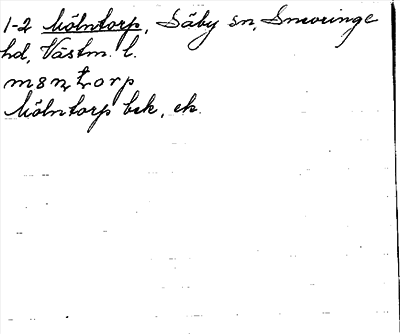 1-2 Mölntorp, Säby sn, Snevringe
hd, Västm. l.
Mölntorp bck, ek.